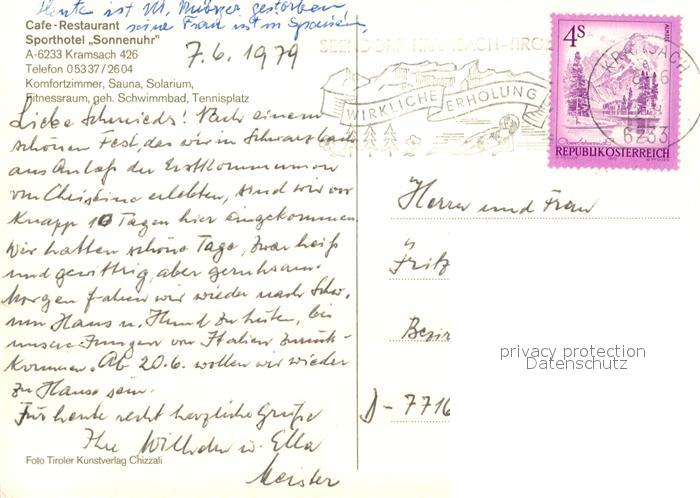 Heute ist M. gestorben,
seine Frau ist in Spanien,
Cafe-Restaurant
Sporthotel „Sonnenuhr"
A-6233 Kramsach 426
Telefon 05337/2604
Komfortzimmer, Sauna, Solarium,
Fitnessraum, geh. Schwimmbad, Tennisplatz
7.6.1979
SEENDORF KRAMSACH-TIROL
WIRKLICHE ERHOLUNG
KRAMSACH
6233
4S
REPUBLIK ÖSTERREICH
Liebe Schmieds! Nach einem
schönen Fest, das wir in Schwarzbach
aus Anlaß der Erstkommunion
von Christine erlebten, sind wir vor
knapp 10 Tagen hier angekommen.
Wir hatten schöne Tage, zwar heiß
und gewittrig, aber geruhsam.
Morgen fahren wir wieder nach Schw.
um Haus u. Hund zu hüten, bis
unsere Jungen von Italien zurück-
kommen. Ab 20.6. wollen wir wieder
zu Hause sein.
Für heute recht herzliche Grüße
Ihre Wilhelm u. Ella
Meister
Herrn und Frau
Fritz
Bezir
D-7716
privacy protection
Datenschutz
Foto Tiroler Kunstverlag Chizzali